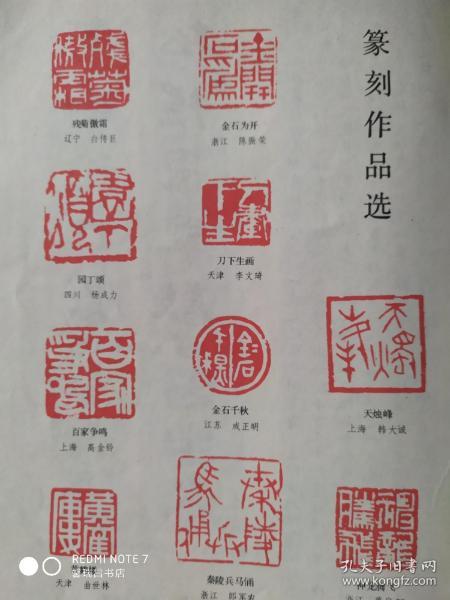 篆刻作品选
残菊傲霜
辽宁 白传巨
金石为开
浙江 陈振荣
园丁颂
四川 杨成力
刀下生画
天津 李文琦
百家争鸣
上海 高金铃
金石千秋
江苏 成正明
天烛峰
上海 韩大诚
天津 曲世林
秦陵兵马俑
浙江
神龙腾飞
REDMI NOTE 7
孔夫子旧书网
kongfz.com